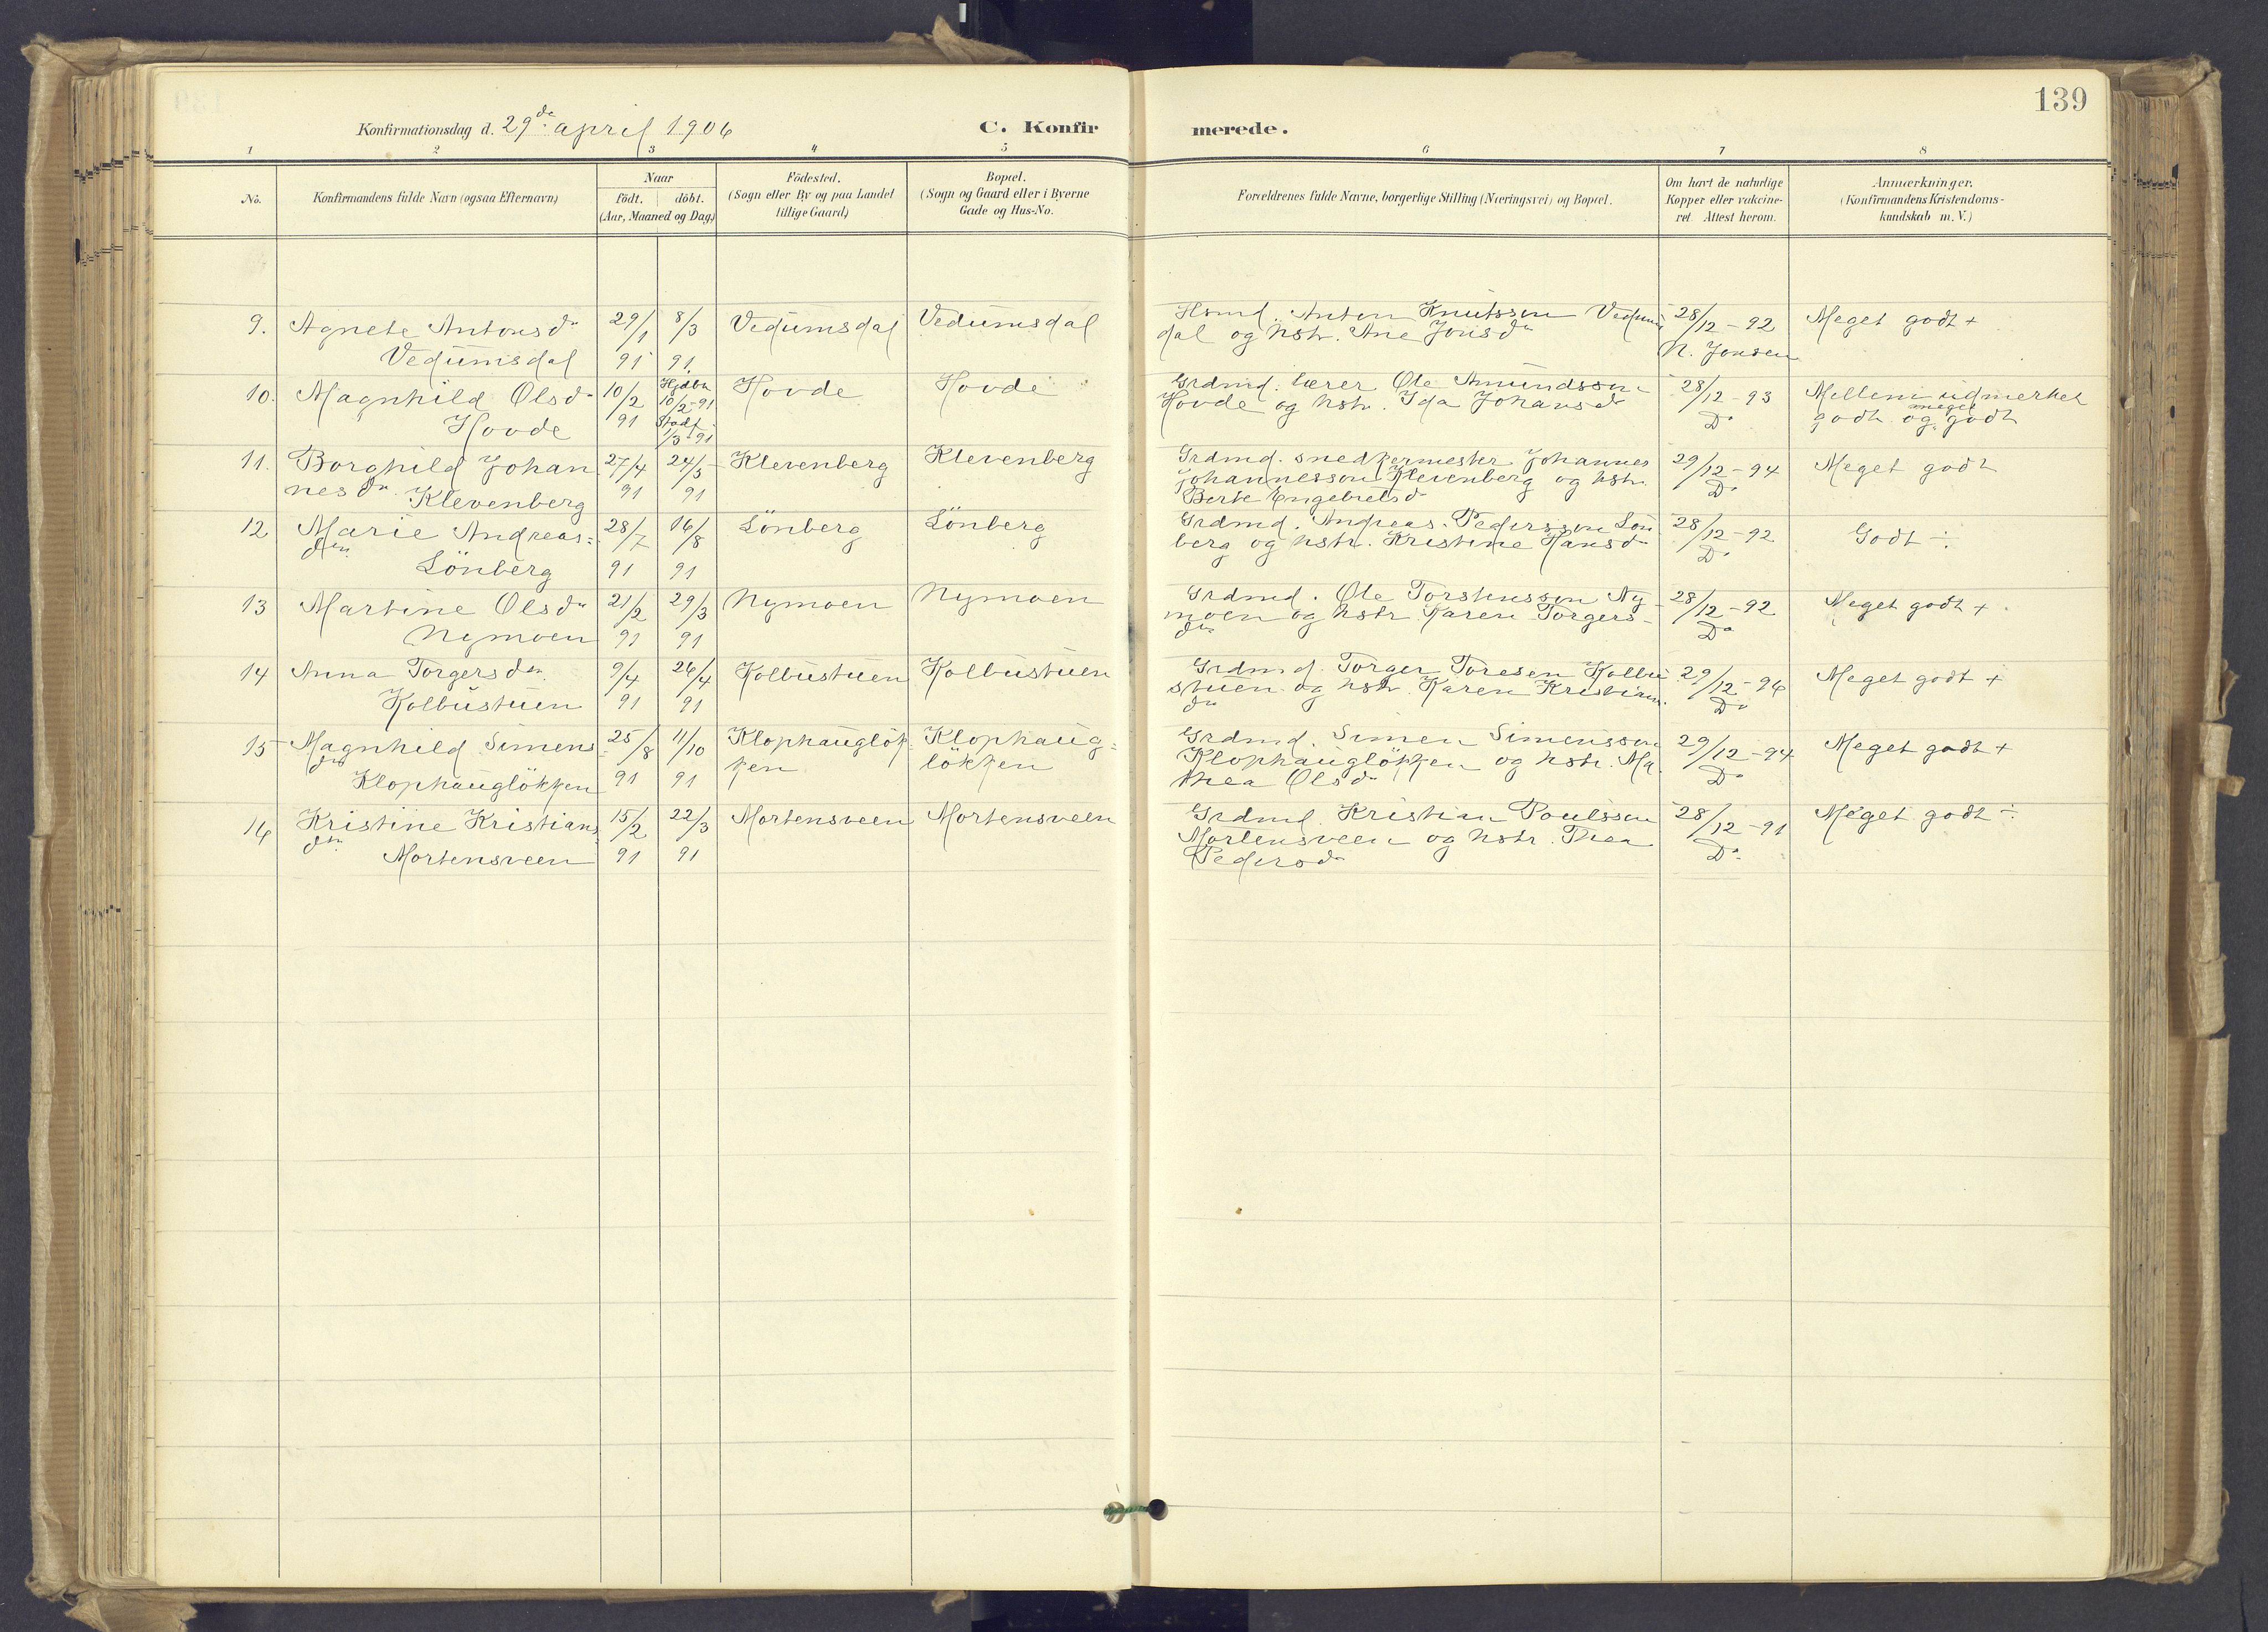 139
Konfirmationsdag d. 29de april 1906
C. Konfir
merede.
1 2 3 4 5 6 7 8
No.
Konfirmandens fulde Navn (ogsaa Efternavn)
Naar
födt. döbt.
(Aar, Maaned og Dag)
Födested.
(Sogn eller By og paa Landet
tillige Gaard)
Bopæl.
(Sogn og Gaard eller i Byerne
Gade og Hus-No.
Forældrenes fulde Navne, borgerlige Stilling (Næringsvei) og Bopæl.
Om havt de naturlige
Kopper eller vakcine-
ret. Attest herom.
Anmærkninger.
(Konfirmandens Kristendoms-
kundskab m. V.)
9. Agnete Antonsdr 29/1 8/3 Vedumsdal Vedumsdal Hsmd. Anton Knutsson Vedums 28/12-92 Meget godt +
Vedumsdal 91 91. dal og hstr. Ane Jonsdr N. Jonsen
10. Magnhild Olsdr 10/2 Hjdbt Hovde Hovde Grdmd. lærer Ole Amundsson 28/12-93 Mellem udmerket
Hovde 91 10/2-91 Hovde og hstr. Ida Johansdr Do godt og meget godt
Stadf. 1/3-91
11. Borghild Johan 27/4 24/5 Klevenberg Klevenberg Grdmd. snedkermester Johannes 29/12-94 Meget godt
nesdr. Klevenberg 91 91 Johannesson Klevenberg og hstr. Do
Berte Engebretsdr
12 Marie Andreas= 28/7 16/8 Lönberg Lönberg Grdmd. Andreas Pedersson Lön 28/12-92 Godt ÷
dtr Lönberg 91 91 berg og hstr. Kristine Hansdr Do
13 Martine Olsdr 21/2 29/3 Nymoen Nymoen Grdmd. Ole Torstensson Ny 28/12-92 Meget godt +
Nymoen 91 91 moen og hstr Karen Torgers- Do
dtr
14 Anna Torgersdtr. 9/4 26/4 Kolbustuen Kolbustuen Grdmd. Torger Toresen Kolbu 29/12-96 Meget godt +
Kolbustuen 91 91 stuen og hstr. Karen Kristians Do
dtr
15 Magnhild Simens 25/8 11/10 Klophauglök Klophaug= Grdmd. Simen Simensson 29/12-94 Meget godt +
dtr Klophauglökken 91 91 ken lökken Klophauglökken og hstr. Ma Do
thea Olsdr
16 Kristine Kristians 15/2 22/3 Mortensveen Mortensveen Grdmd. Kristian Poulsson 28/12-91 Meget godt ÷
dtr. Mortensveen 91 91 Mortensveen og hstr. Thea Do
Pedersdr